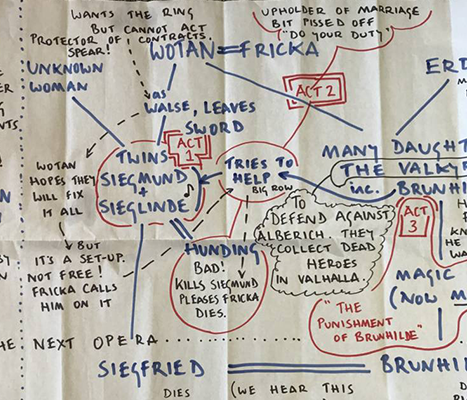 WANTS THE RING
BUT CANNOT ACT
PROTECTOR OF CONTRACTS.
SPEAR!
UPHOLDER OF MARRIAGE
BIT PISSED OFF
"DO YOUR DUTY"
WOTAN = FRICKA
UNKNOWN
WOMAN
ERD
as
WALSE, LEAVES
SWORD
ACT 2
ACT
1
TWINS
SIEGMUND
+
SIEGLINDE
WOTAN
HOPES THEY
WILL FIX
IT ALL
TRIES TO
HELP
BIG ROW
MANY DAUGHT
THE VALKY
inc. BRUNHI
ACT
3
TO
DEFEND AGAINST
ALBERICH. THEY
COLLECT DEAD
HEROES
IN VALHALLA.
BUT
IT'S A SET-UP.
NOT FREE!
FRICKA CALLS
HIM ON IT
HUNDING
BAD!
KILLS SIEGMUND
PLEASES FRICKA
DIES.
KN
HE
WA
MAGIC
(NOW M
"THE
PUNISHMENT
OF BRUNHILDE"
HE NEXT OPERA
SIEGFRIED
BRUNHI
DIES
(WE HEAR THIS